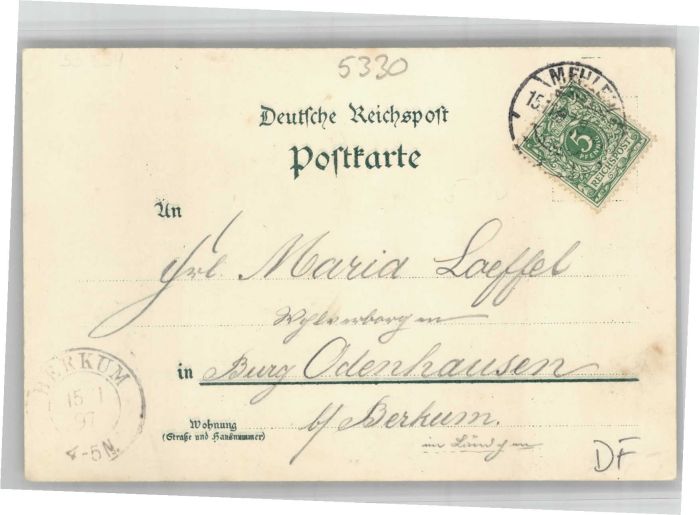 5330
MEHLE
15
Deutsche Reichspost
Postkarte
5
PFENNIG
REICHSPOST
An
Frl. Maria Loeffel
Wohlverborgen
in Burg Odenhausen
b/ Berkum.
im Ländchen
Wohnung
(Straße und Hausnummer)
BERKUM
15 1
97
4-5N
DF